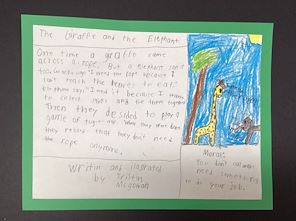 The Giraffe and the Elephant
One time a giraffe came
across a rope. But a elephant came
too. Giraffe says "I need the rope because I
can't reach the leaves to eat."
Elephant says "I need it because I
to collect and tie them together
Then they desided to play a
game of tug war. When they were done
they relised that they don't need
the rope anymore.
Writin and ilustrated
by Kristin
Mcgowan
Moral:
You don't always
need something
to do your job.